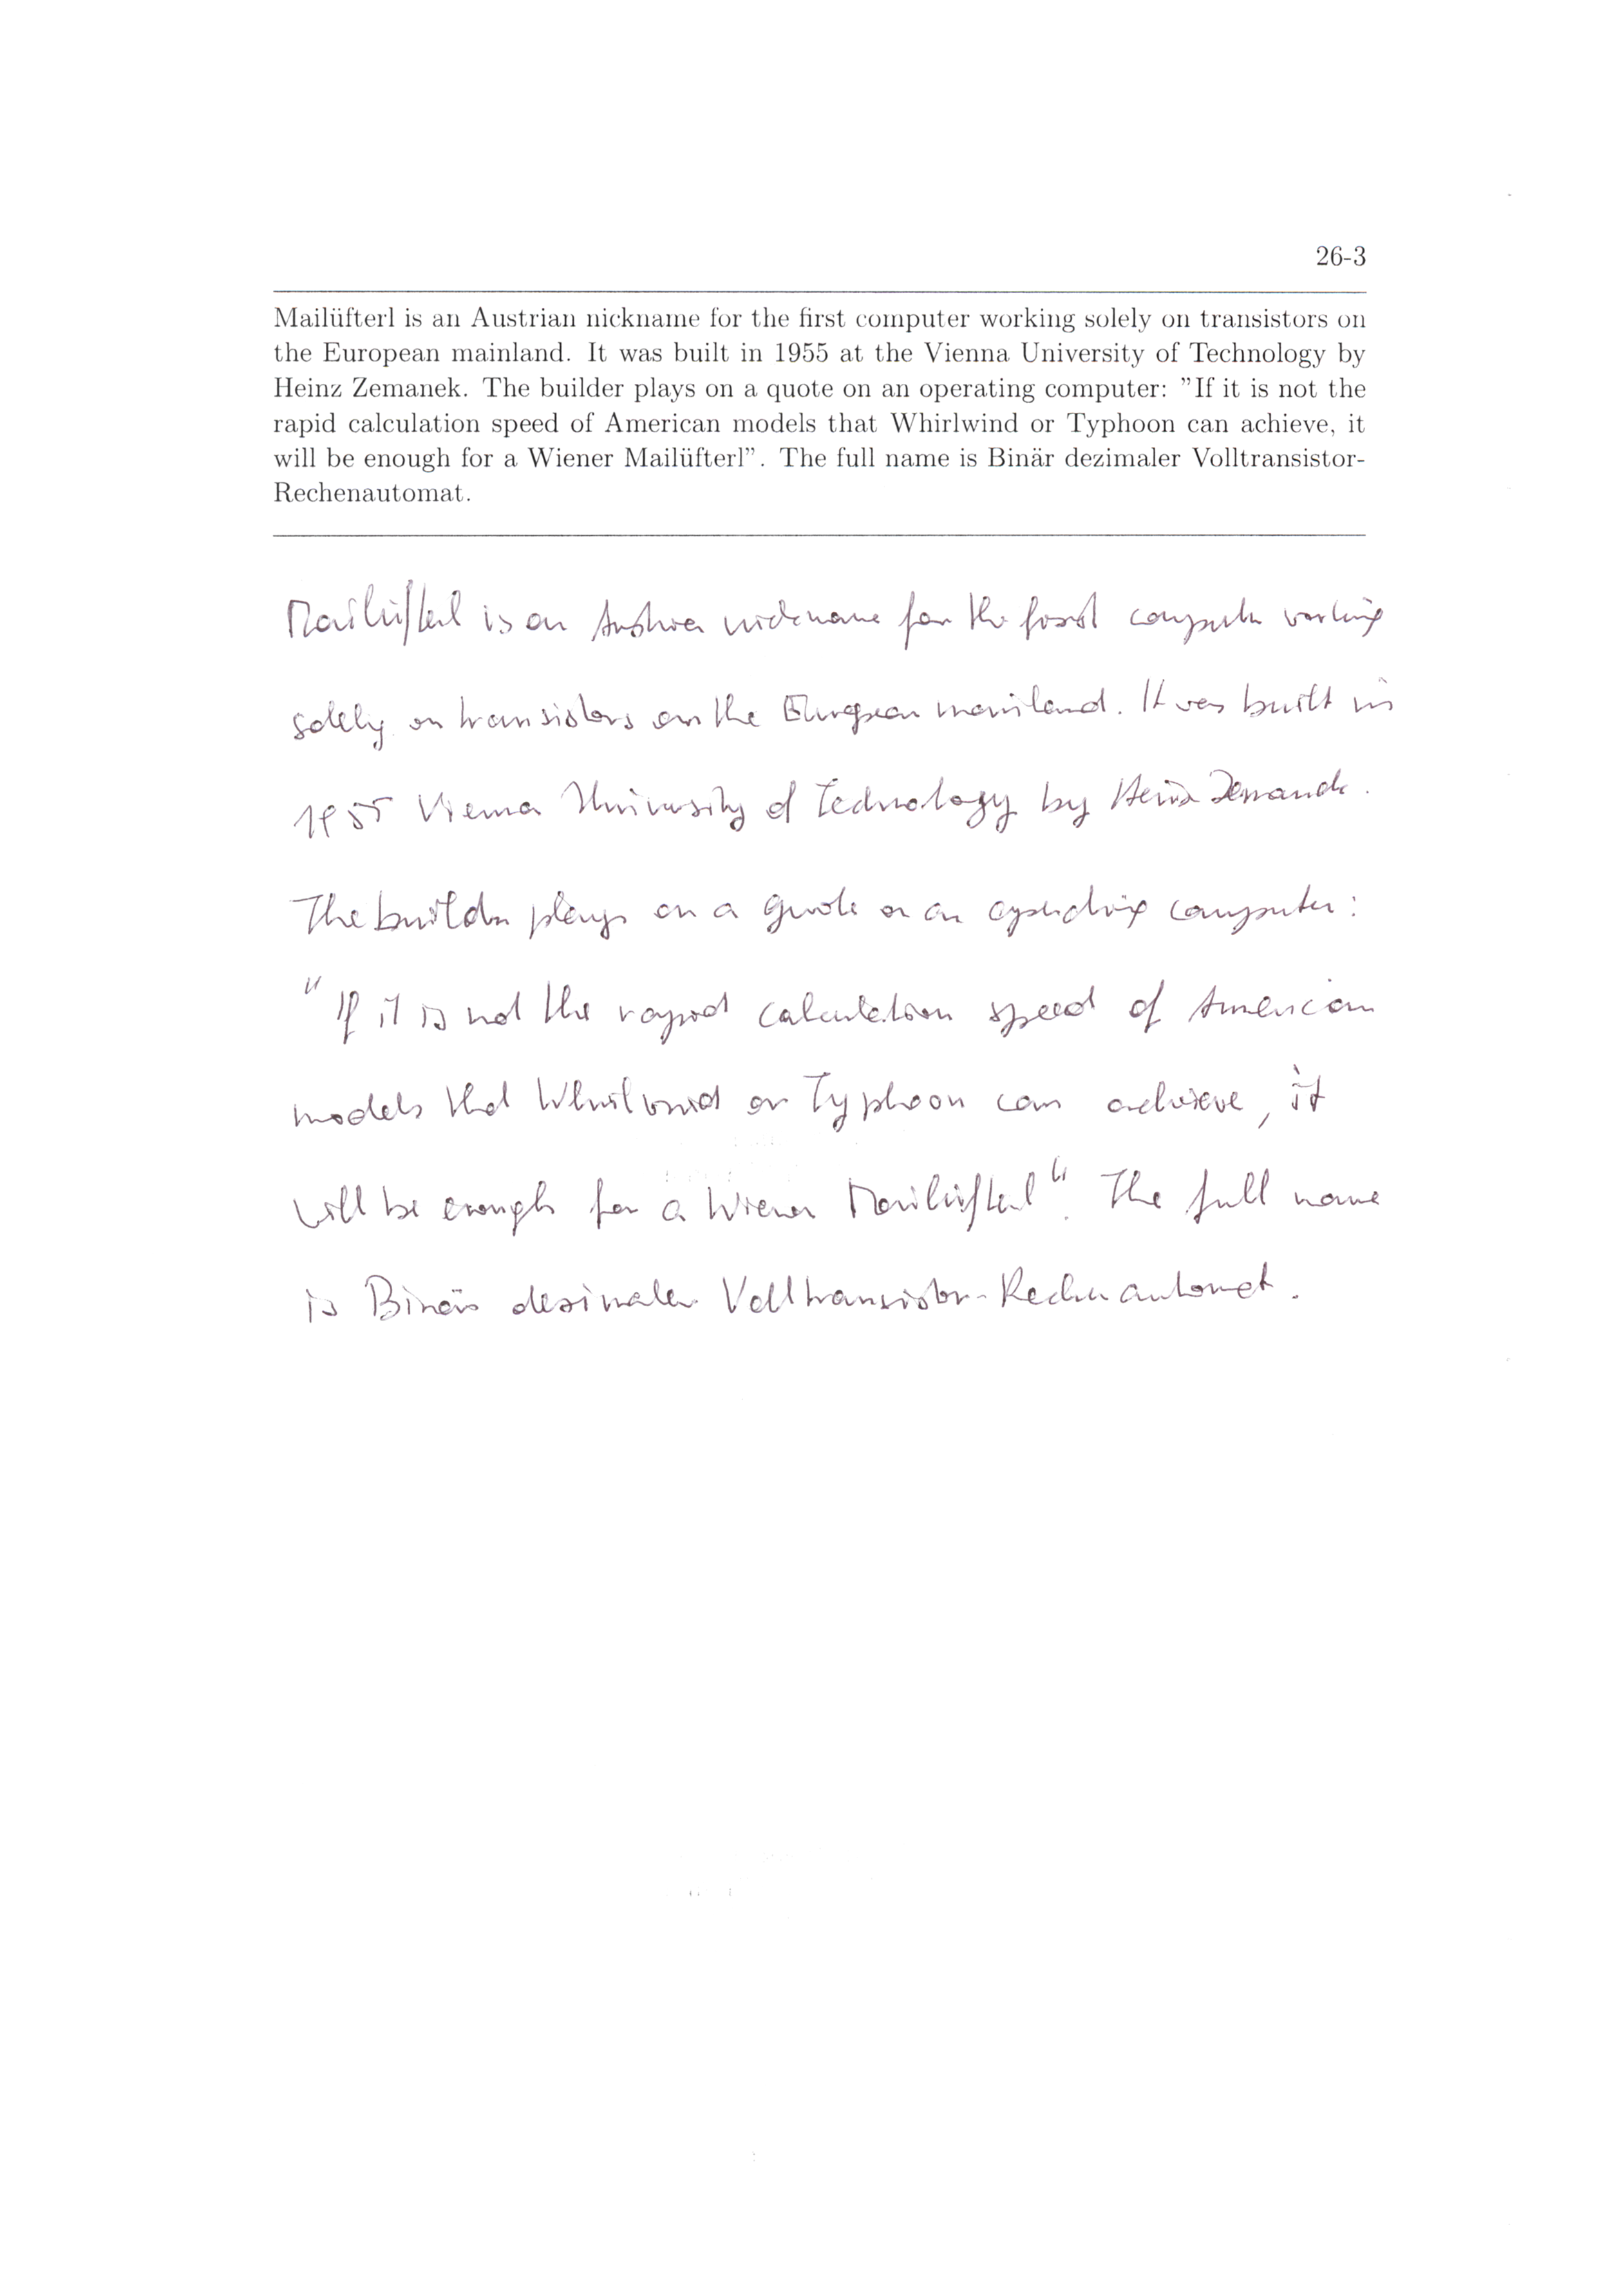 26-3
Mailüfterl is an Austrian nickname for the first computer working solely on transistors on
the European mainland. It was built in 1955 at the Vienna University of Technology by
Heinz Zemanek. The builder plays on a quote on an operating computer: ”If it is not the
rapid calculation speed of American models that Whirlwind or Typhoon can achieve, it
will be enough for a Wiener Mailüfterl”. The full name is Binär dezimaler Volltransistor-
Rechenautomat.
Mailüfterl is an Austrian nickname for the first computer working
solely on transistors on the European mainland. It was built in
1955 Vienna University of Technology by Heinz Zemanek.
The builder plays on a quote on an operating computer:
"If it is not the rapid calculation speed of American
models that Whirlwind or Typhoon can achieve, it
will be enough for a Wiener Mailüfterl". The full name
is Binär dezimaler Volltransistor-Rechenautomat.